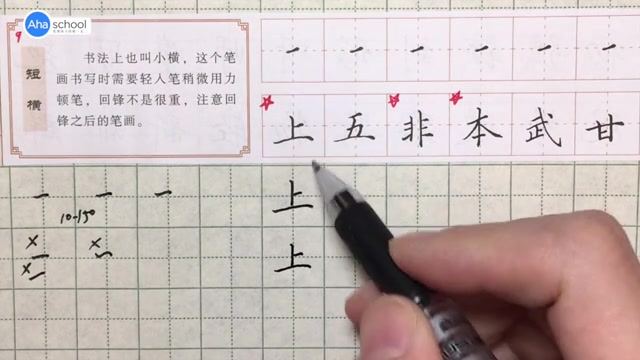 Aha school
9
短横
书法上也叫小横，这个笔
画书写时需要轻入笔稍微用力
顿笔，回锋不是很重，注意回
锋之后的笔画。
上 五 非 本 武 甘
10-15°
上
上